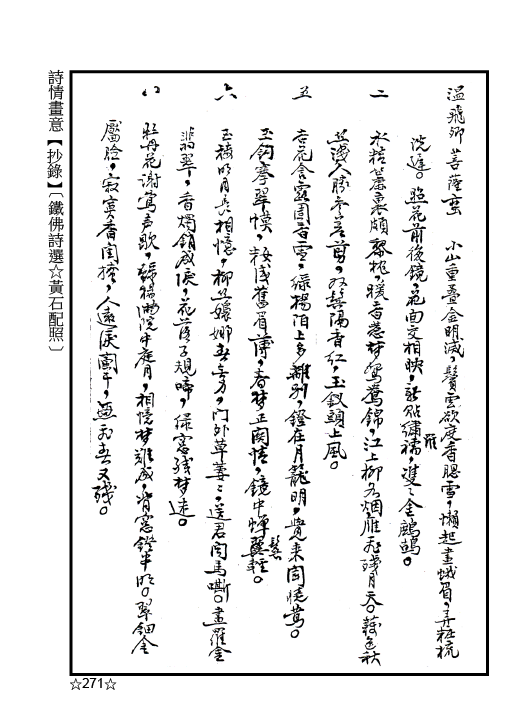 溫飛卿 菩薩蠻 小山重疊金明滅，鬢雲欲度香腮雪，懶起畫蛾眉，弄粧梳
洗遲。照花前後鏡，花面交相映，新貼繡羅襦，雙々金鷓鴣。
二 水精簾裏頗黎枕，暖香惹梦鴛鴦錦，江上柳如烟，雁飛殘月天。藕色秋
絲淺，人勝參差剪，双鬢隔香紅，玉釵頭上風。
五 杏花含露團香雪，綠楊陌上多離別，鐙在月籠明，覺来聞曉鶯。
玉鈎褰翠幙，妝淺舊眉薄，春梦正関情，鏡中蟬鬢輕。
六 玉樓明月長相憶，柳絲嬝娜春無力，門外草萋々，送君聞馬嘶。畫羅金
翡翠，香燭銷成淚，花落子規啼，綠窓殘梦迷。
八 牡丹花謝鶯声歇，綠楊滿院中庭月，相憶梦難成，背窓鐙半明。翠鈿金
壓臉，寂寞香閨掩，人遠淚闌干，燕飛春又殘。
詩情畫意【抄錄】〔鐵佛詩選☆黃石配照〕
☆271☆